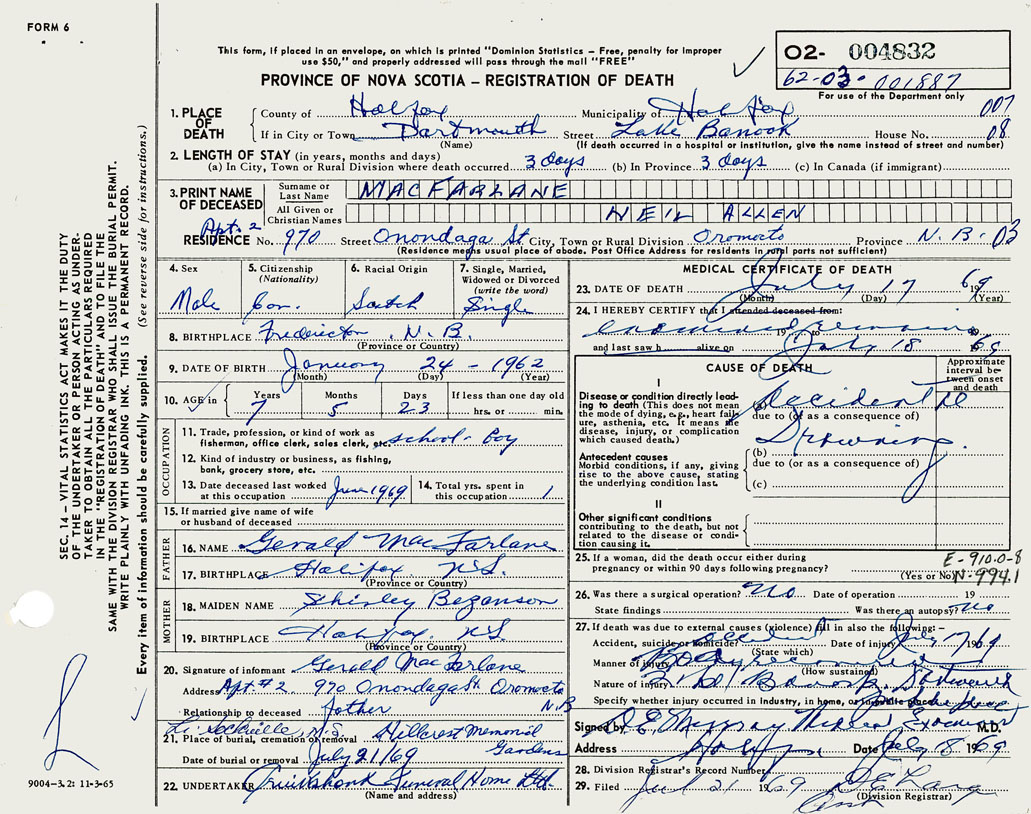 FORM 6
This form, if placed in an envelope, on which is printed "Dominion Statistics – Free, penalty for improper
use $50," and properly addressed will pass through the mail "FREE"
PROVINCE OF NOVA SCOTIA – REGISTRATION OF DEATH
O2- 004832
62-03- 001887
For use of the Department only
1. PLACE OF DEATH County of Halifax Municipality of Halifax 007
If in City or Town Dartmouth Street Lake Banook House No. 08
(Name) (If death occurred in a hospital or institution, give the name instead of street and number)
2. LENGTH OF STAY (in years, months and days)
(a) In City, Town or Rural Division where death occurred 3 days (b) In Province 3 days (c) In Canada (if immigrant)
3. PRINT NAME OF DECEASED Surname or Last Name MACFARLANE
All Given or Christian Names NEIL ALLEN
Apt. 2
RESIDENCE No. 970 Street Onondaga St City, Town or Rural Division Oromocto Province N.B. 03
(Residence means usual place of abode. Post Office Address for residents in rural parts not sufficient)
4. Sex Male
5. Citizenship (Nationality) Can.
6. Racial Origin Scotch
7. Single, Married, Widowed or Divorced (write the word) Single
8. BIRTHPLACE Fredericton, N.B.
(Province or Country)
9. DATE OF BIRTH January 24 - 1962
(Month) (Day) (Year)
10. AGE in Years 7 Months 5 Days 23 If less than one day old hrs. or min.
OCCUPATION
11. Trade, profession, or kind of work as
fisherman, office clerk, sales clerk, etc. school-boy
12. Kind of industry or business, as fishing,
bank, grocery store, etc.
13. Date deceased last worked at this occupation June 1969
14. Total yrs. spent in this occupation 1
15. If married give name of wife
or husband of deceased
FATHER
16. NAME Gerald MacFarlane
17. BIRTHPLACE Halifax N.S.
(Province or Country)
MOTHER
18. MAIDEN NAME Shirley Bezanson
19. BIRTHPLACE Halifax N.S.
(Province or Country)
20. Signature of informant Gerald MacFarlane
Address Apt. #2 970 Onondaga St. Oromocto N.B
Relationship to deceased father
Sackville, N.S. Hillcrest Memorial Gardens
21. Place of burial, cremation or removal
Date of burial or removal July 21/69
22. UNDERTAKER Cruikshank Funeral Home Ltd.
(Name and address)
MEDICAL CERTIFICATE OF DEATH
23. DATE OF DEATH July 17 1969
(Month) (Day) (Year)
24. I HEREBY CERTIFY that I attended deceased from:
examined remains 19
and last saw h alive on July 18 69
CAUSE OF DEATH
Approximate interval between onset and death
I
Disease or condition directly leading to death (This does not mean the mode of dying, e.g., heart failure, asthenia, etc. It means the disease, injury, or complication which caused death.)
(a) Accidental
due to (or as a consequence of)
Drowning.
Antecedent causes
Morbid conditions, if any, giving rise to the above cause, stating the underlying condition last.
(b)
due to (or as a consequence of)
(c)
II
Other significant conditions
contributing to the death, but not related to the disease or condition causing it.
25. If a woman, did the death occur either during
pregnancy or within 90 days following pregnancy?
(Yes or No)
E-910.0-8
N-994.1
26. Was there a surgical operation? No Date of operation 19
State findings Was there an autopsy? No
27. If death was due to external causes (violence) fill in also the following:–
Accident, suicide or homicide? accident Date of injury July 17 1969
(State which)
Manner of injury Body recovered
(How sustained)
Nature of injury Banook, Dartmouth
Specify whether injury occurred in industry, in home, or in public place
Signed by Murray Medical Examiner M.D.
Address Halifax Date July 18 1969
28. Division Registrar's Record Number
29. Filed Jul 21 1969
(Division Registrar)
SEC. 14 – VITAL STATISTICS ACT MAKES IT THE DUTY
OF THE UNDERTAKER OR PERSON ACTING AS UNDER-
TAKER TO OBTAIN ALL THE PARTICULARS REQUIRED
IN THE "REGISTRATION OF DEATH" AND TO FILE THE
SAME WITH THE DIVISION REGISTRAR WHO SHALL ISSUE THE BURIAL PERMIT.
WRITE PLAINLY WITH UNFADING INK. THIS IS A PERMANENT RECORD.
Every item of information should be carefully supplied. (See reverse side for instructions.)
9004–3.2: 11-3-65